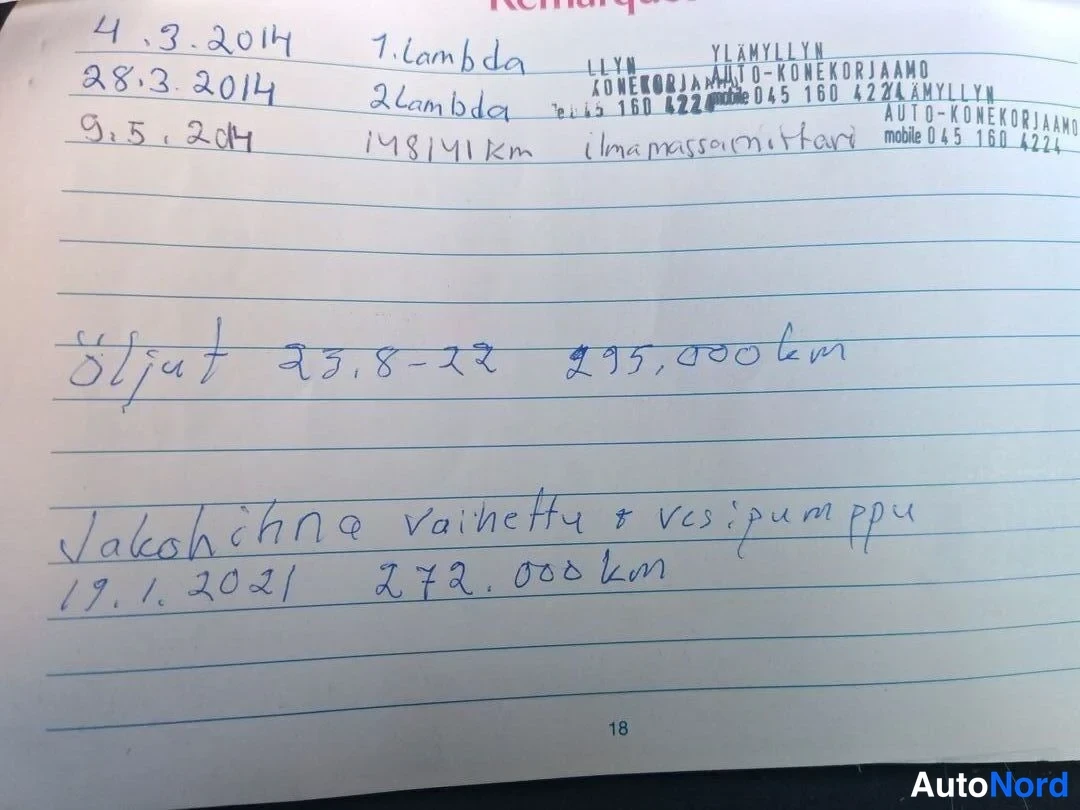 Remarques
4.3.2014 1.Lambda
LLYN YLÄMYLLYN
KONEKORJAAMO AUTO-KONEKORJAAMO
28.3.2014 2Lambda 45 160 4224 mobile 045 160 4224 YLÄMYLLYN
AUTO-KONEKORJAAMO
9.5.2014 148141 km ilmamassamittari mobile 045 160 4224
Öljyt 23.8-22 295,000 km
Jakohihna vaihettu + vesipumppu
19.1.2021 272.000 km
18
AutoNord